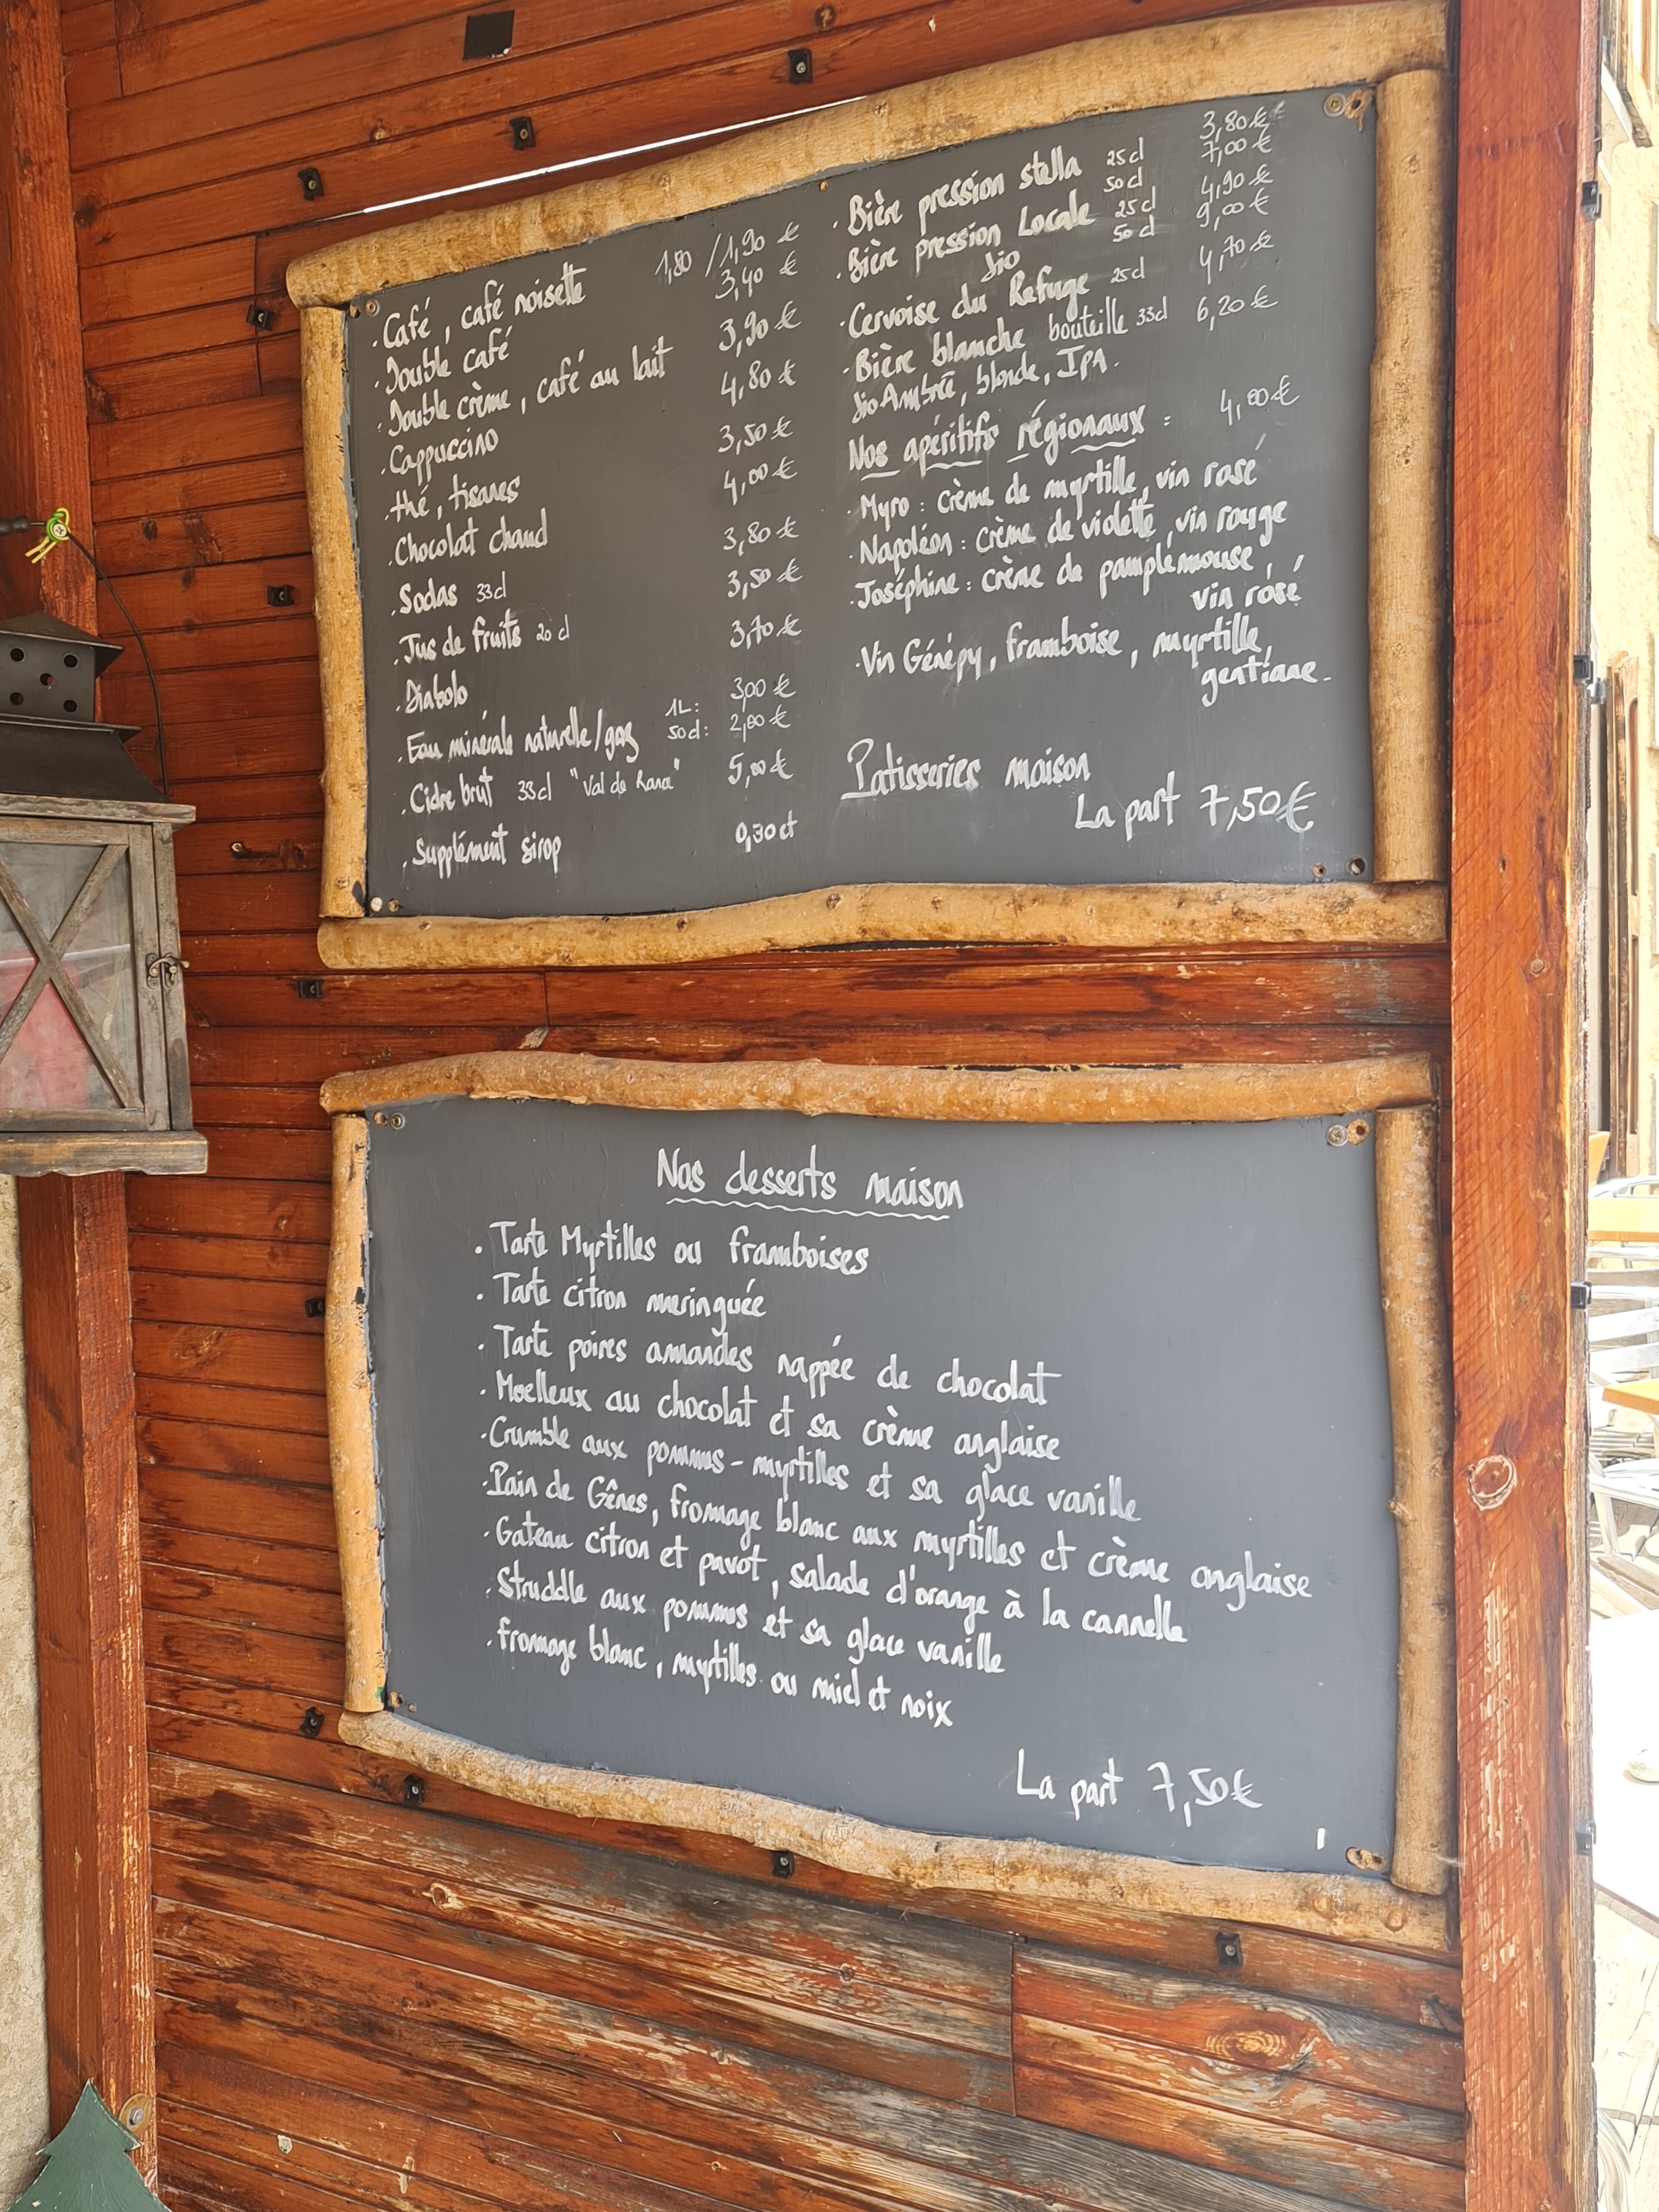 . Café, café noisette 1,80 / 1,90 €
. Double café 3,40 €
. Double crème, café au lait 3,90 €
. Cappuccino 4,80 €
. thé, tisanes 3,50 €
. Chocolat chaud 4,00 €
. Sodas 33cl 3,80 €
. Jus de fruits 20 cl 3,50 €
. Diabolo 3,70 €
. Eau minérale naturelle/gaz 1L: 3,00 €
50cl: 2,00 €
. Cidre brut 33cl "Val de Rance" 5,00 €
. Supplément sirop 0,30 ct
. Bière pression stella 25cl 3,80 €
50cl 7,00 €
. Bière pression Locale 25cl 4,90 €
bio 50cl 9,00 €
. Cervoise du Refuge 25cl 4,70 €
. Bière blanche bouteille 33cl 6,20 €
bio Ambrée, blonde, IPA.
Nos apéritifs régionaux : 4,00 €
. Myro : crème de myrtille, vin rosé
. Napoléon : crème de violette, vin rouge
. Joséphine : crème de pamplemousse,
vin rosé
. Vin Génépy, framboise, myrtille,
gentiane.
Patisseries maison
La part 7,50€
Nos desserts maison
. Tarte Myrtilles ou framboises
. Tarte citron meringuée
. Tarte poires amandes nappée de chocolat
. Moelleux au chocolat et sa crème anglaise
. Crumble aux pommes - myrtilles et sa glace vanille
. Pain de Gênes, fromage blanc aux myrtilles et crème anglaise
. Gateau citron et pavot, salade d'orange à la cannelle
. Struddle aux pommes et sa glace vanille
. fromage blanc, myrtilles ou miel et noix
La part 7,50€